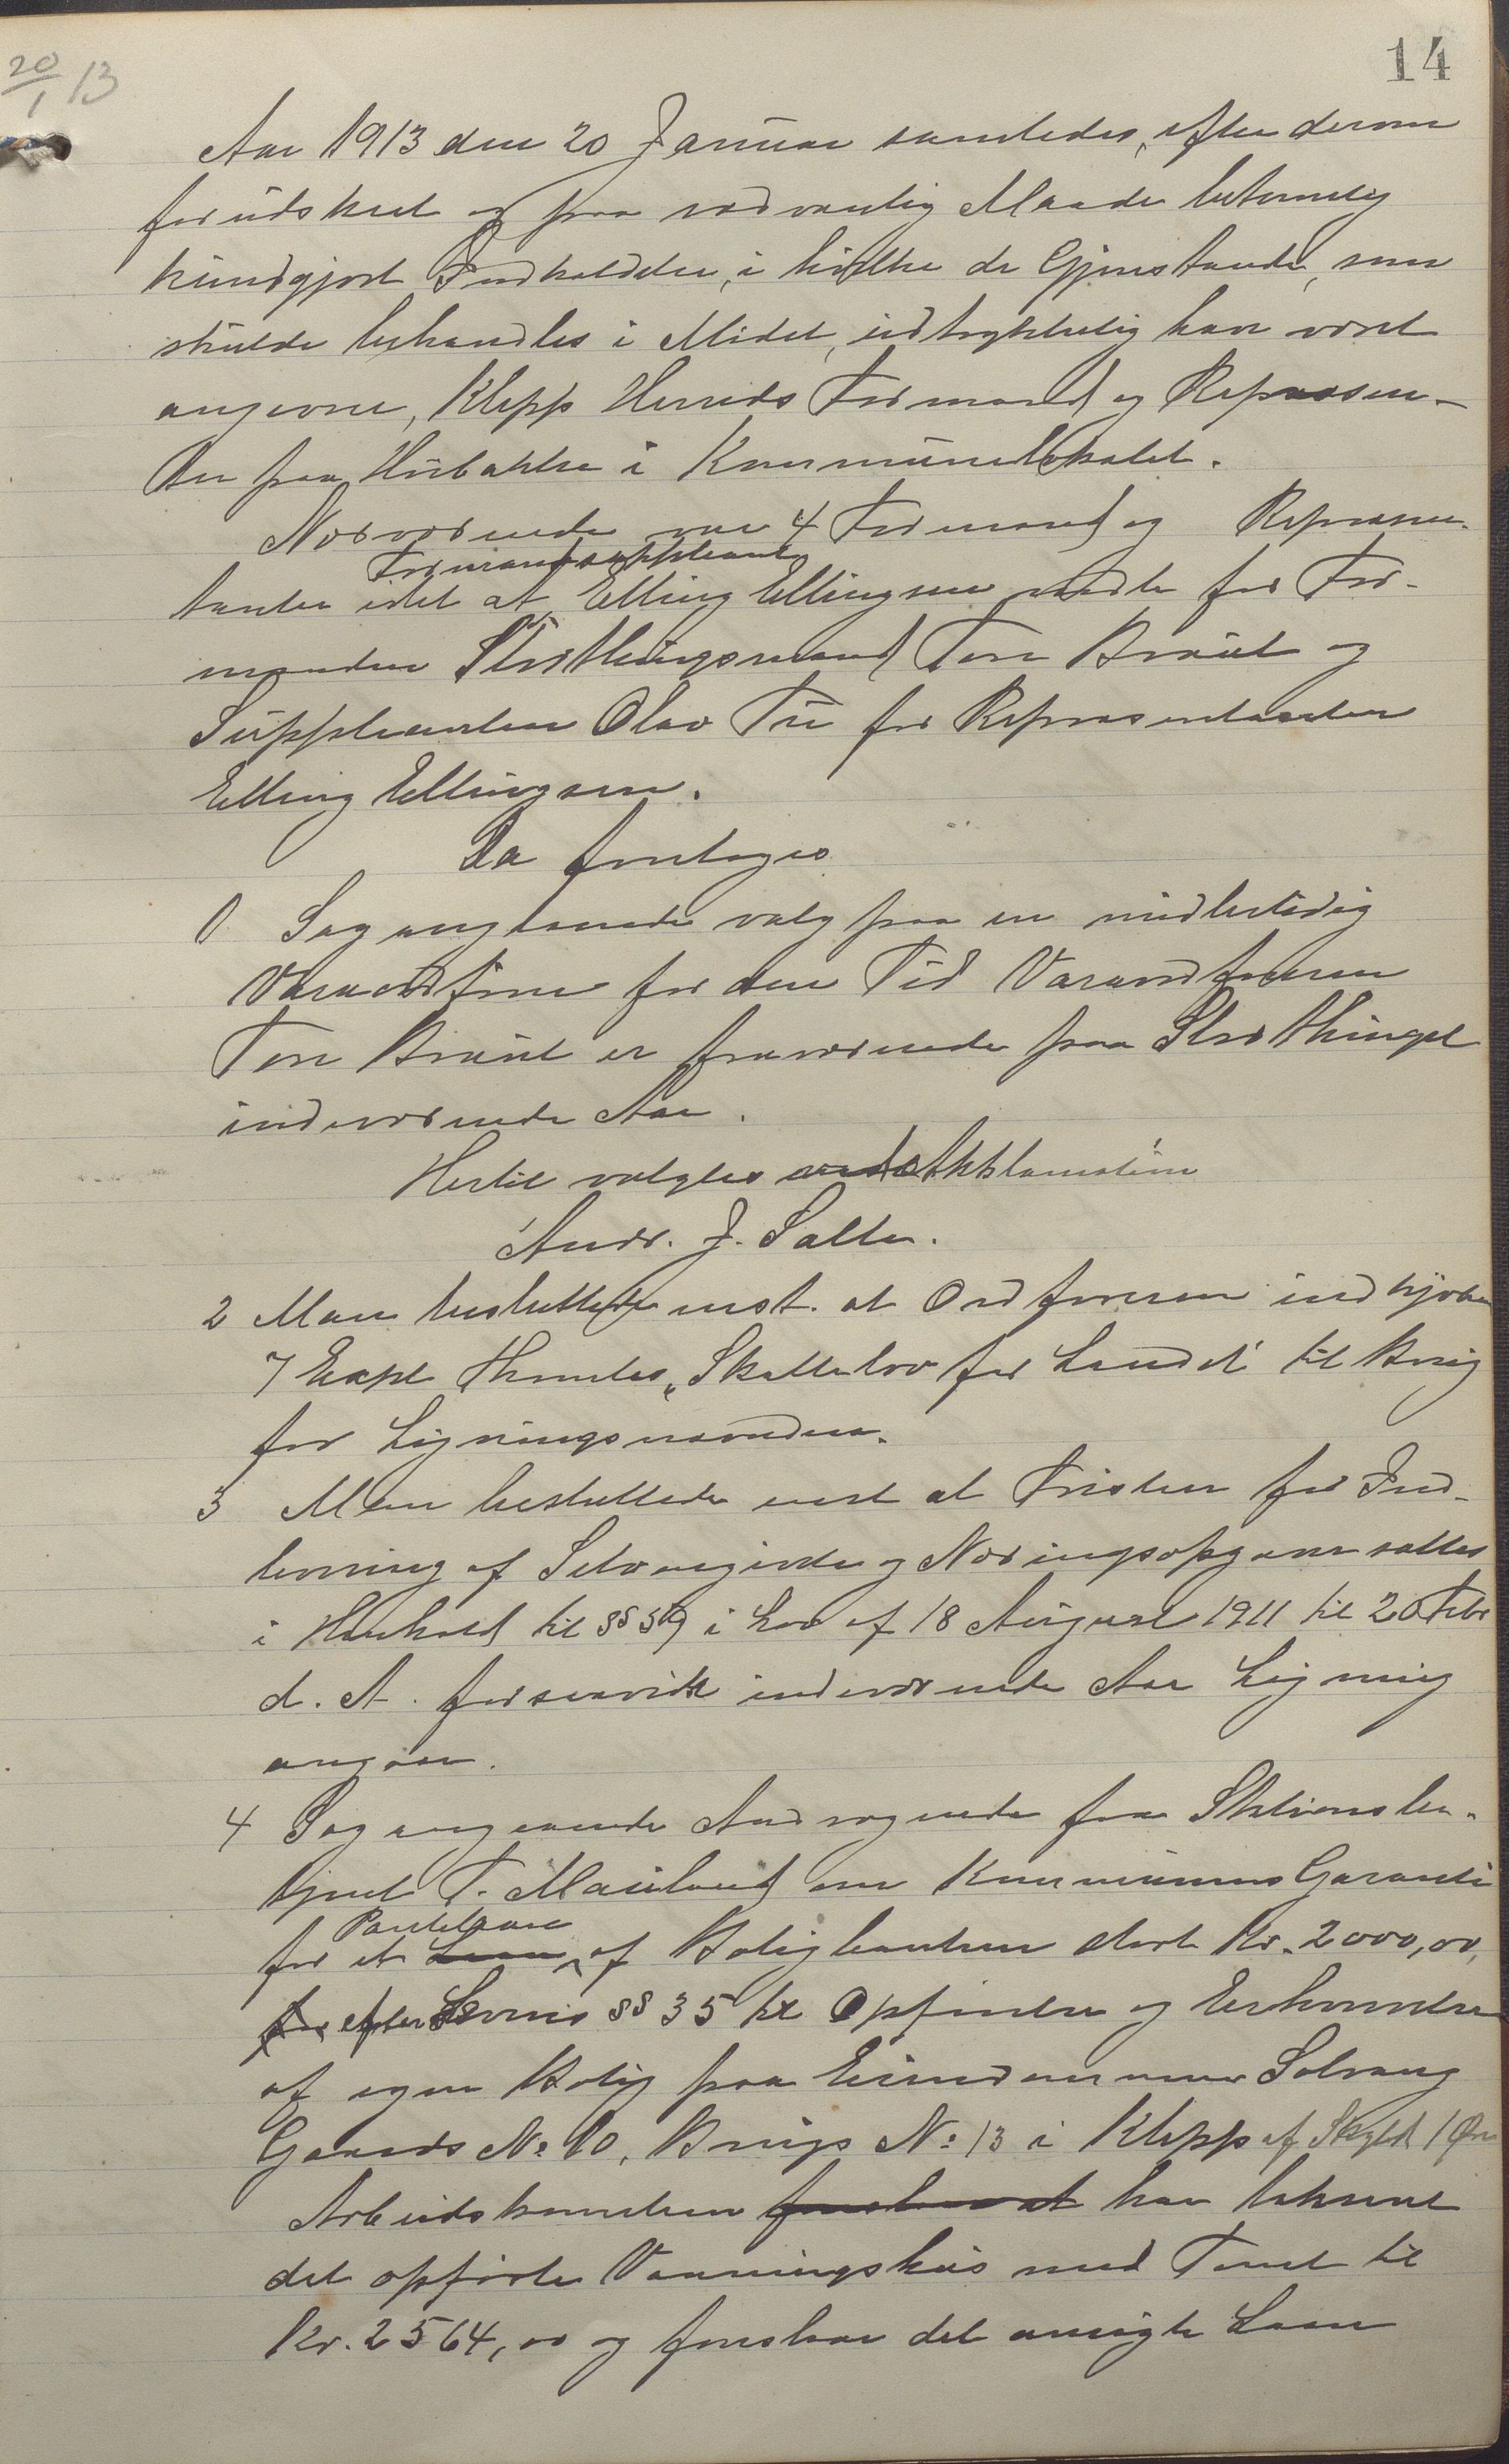 14
20/1 13
Aar 1913 den 20 Januar samledes, efter derom
forudskeet og paa sædvanlig Maade betimelig
kundgjort Indkaldelse, i hvilke de Gjenstande, som
skulde behandles i Mødet, udtrykkelig har været
angivne, Klepp Herreds Formænd og Repræsen-
ter paa Hübakke i Kommunelokalet.
Nærværende var 4 Formænd og Repræsen-
Formandssuppleant
tanter idet at Elling Ellingsen mødte for For-
manden Storthingsmand Tore Braut og
Suppleanten Olav Tu for Repræsentanten
Elling Ellingsen.
Da foretoges
1 Sag angaaende valg paa en midlertidig
Varaordfører for den Tid Varaordføreren
Tore Braut er fraværende paa Storthinget
indeværende Aar.
Hertil valgtes ved Akklamation
Andr. J. Salte.
2 Man besluttede enst. at Ordføreren indkjøber
7 Expl Thomles "Skattelov for Landet" til Brug
for Ligningsnævnden.
3 Man besluttede enst at Fristen for Ind-
levering af Selvangivelse og Næringsopgaver sættes
i Henhold til §§ 59 i Lov af 18 August 1911 til 20 Febr
d. A. forsaavidt indeværende Aar Ligning
angaar.
4 Sag angaaende Andragende fra Stationsbe-
tjent T. Mauland om Kommunens Garanti
Pantelaan
for et Laan af Boligbanken stort Kr. 2000,00,
for efter Lovens §§ 35 til Opførelse og Erhvervelse
af egen Bolig paa Eiendommen Solvang
Gaards No 10, Brugs No 13 i Klepp af Skyld 1 Øre
Arbeidskomiteen foreslaar at har takseret
det opførte Vaaningshus med Tomt til
Kr. 2564,00 og foreslaar det ansøgte Laan